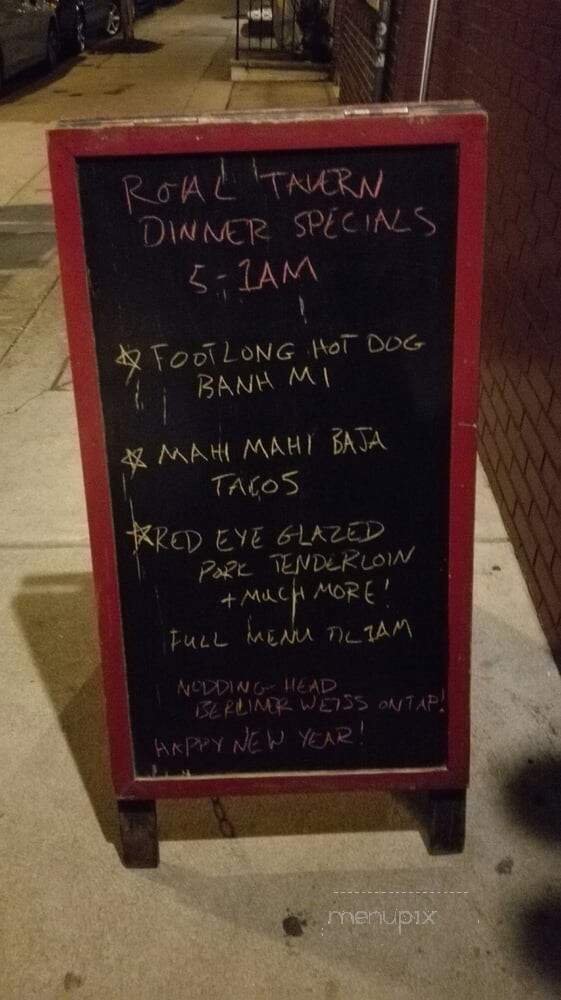 ROYAL TAVERN
DINNER SPECIALS
5-1AM
FOOTLONG HOT DOG
BANH MI
MAHI MAHI BAJA
TACOS
RED EYE GLAZED
PORK TENDERLOIN
+ MUCH MORE!
FULL MENU TIL 1AM
NODDING HEAD
BERLINER WEISS ON TAP!
HAPPY NEW YEAR!
menupix